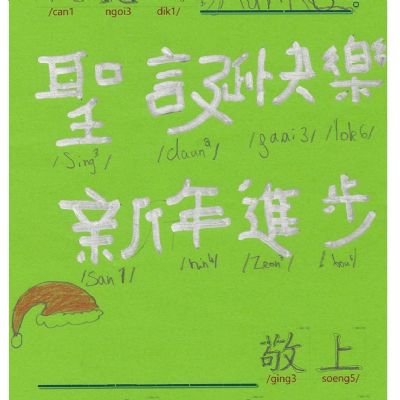 /can1 ngoi3 dik1/
聖誕快樂
/Sing3/ /daun3/ /gaai3/ /lok6/
新年進步
/San1/ /nin4/ /Zeon3/ /bou6/
敬上
/ging3 soeng5/